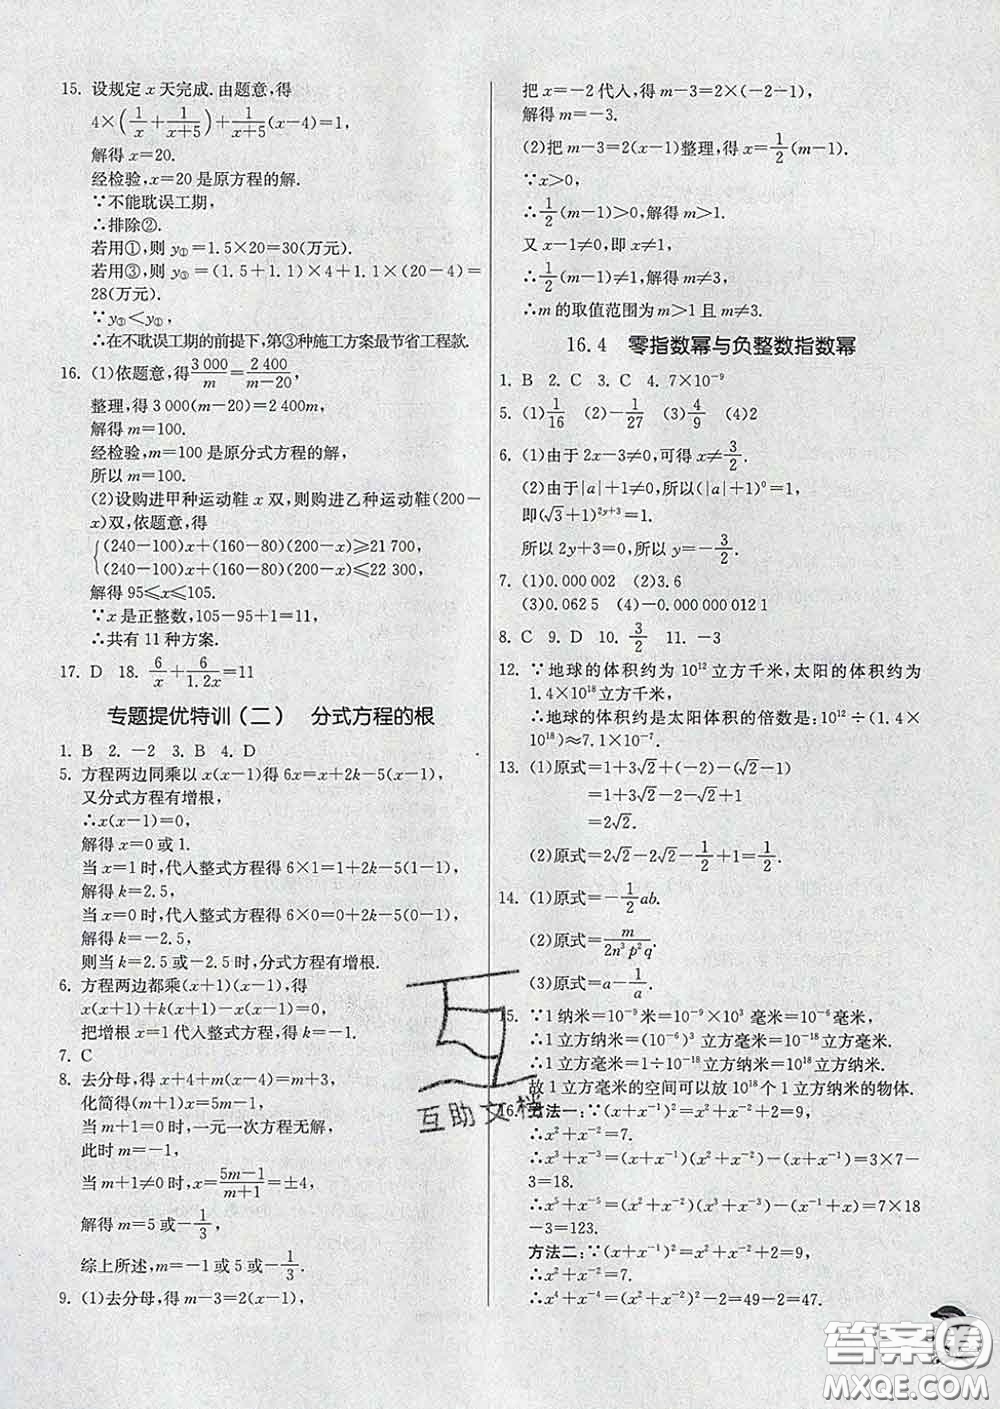 15. 设规定 x 天完成. 由题意，得
4×(1/x+1/(x+5))+1/(x+5)(x-4)=1，
解得 x=20.
经检验，x=20 是原方程的解.
∵不能耽误工期，
∴排除②.
若用①，则 y①=1.5×20=30(万元).
若用③，则 y③=(1.5+1.1)×4+1.1×(20-4)=
28(万元).
∵y③<y①，
∴在不耽误工期的前提下，第③种施工方案最节省工程款.
16. (1)依题意，得3 000/m=2 400/(m-20)，
整理，得 3 000(m-20)=2 400m，
解得 m=100.
经检验，m=100 是原分式方程的解，
所以 m=100.
(2)设购进甲种运动鞋 x 双，则购进乙种运动鞋(200-
x)双，依题意，得
{(240-100)x+(160-80)(200-x)≥21 700,
(240-100)x+(160-80)(200-x)≤22 300,
解得 95≤x≤105.
∵x 是正整数，105-95+1=11，
∴共有 11 种方案.
17. D 18. 6/x+6/1.2x=11
专题提优特训(二) 分式方程的根
1. B 2. -2 3. B 4. D
5. 方程两边同乘以 x(x-1)得 6x=x+2k-5(x-1)，
又分式方程有增根，
∴x(x-1)=0，
解得 x=0 或 1.
当 x=1 时，代入整式方程得 6×1=1+2k-5(1-1)，
解得 k=2.5，
当 x=0 时，代入整式方程得 6×0=0+2k-5(0-1)，
解得 k=-2.5，
则当 k=2.5 或-2.5 时，分式方程有增根.
6. 方程两边都乘(x+1)(x-1)，得
x(x+1)+k(x+1)-x(x-1)=0，
把增根 x=1 代入整式方程，得 k=-1.
7. C
8. 去分母，得 x+4+m(x-4)=m+3，
化简得(m+1)x=5m-1，
当 m+1=0 时，一元一次方程无解，
此时 m=-1，
当 m+1≠0 时，x=(5m-1)/(m+1)=±4，
解得 m=5 或-1/3，
综上所述，m=-1 或 5 或-1/3.
9. (1)去分母，得 m-3=2(x-1)，
把 x=-2 代入，得 m-3=2×(-2-1)，
解得 m=-3.
(2)把 m-3=2(x-1)整理，得 x=1/2(m-1).
∵x>0，
∴1/2(m-1)>0，解得 m>1.
又 x-1≠0，即 x≠1，
∴1/2(m-1)≠1，解得 m≠3，
∴m 的取值范围为 m>1 且 m≠3.
16.4 零指数幂与负整数指数幂
1. B 2. C 3. C 4. 7×10⁻⁹
5. (1)1/16 (2)-1/27 (3)4/9 (4)2
6. (1)由于 2x-3≠0，可得 x≠3/2.
(2)由于|a|+1≠0，所以(|a|+1)⁰=1，
即(√3+1)^(2y+3)=1.
所以 2y+3=0，所以 y=-3/2.
7. (1)0.000 002 (2)3.6
(3)0.062 5 (4)-0.000 000 012 1
8. C 9. D 10. 3/2 11. -3
12. ∵地球的体积约为 10¹²立方千米，太阳的体积约为
1.4×10¹⁸立方千米，
∴地球的体积约是太阳体积的倍数是：10¹²÷(1.4×
10¹⁸)≈7.1×10⁻⁷.
13. (1)原式=1+3√2+(-2)-(√2-1)
=1+3√2-2-√2+1
=2√2.
(2)原式=2√2-2√2-1/2+1=1/2.
14. (1)原式=-1/2ab.
(2)原式=m/(2n³p²q).
(3)原式=a-1/a.
15. ∵1 纳米=10⁻⁹米=10⁻⁹×10³ 毫米=10⁻⁶毫米，
∴1 立方纳米=(10⁻⁶)³ 立方毫米=10⁻¹⁸立方毫米，
∴1 立方毫米=1÷10⁻¹⁸立方纳米=10¹⁸立方纳米，
故 1 立方毫米的空间可以放 10¹⁸个 1 立方纳米的物体.
16. 方法一：∵(x+x⁻¹)²=x²+x⁻²+2=9，
∴x²+x⁻²=7.
∴x³+x⁻³=(x+x⁻¹)(x²+x⁻²)-(x+x⁻¹)=3×7-
3=18.
∴x⁵+x⁻⁵=(x²+x⁻²)(x³+x⁻³)-(x⁻¹+x)=7×18
-3=123.
方法二：∵(x+x⁻¹)²=x²+x⁻²+2=9，
∴x²+x⁻²=7.
∴x⁴+x⁻⁴=(x²+x⁻²)²-2=49-2=47.
互助文档
答案卷
MXQE.COM